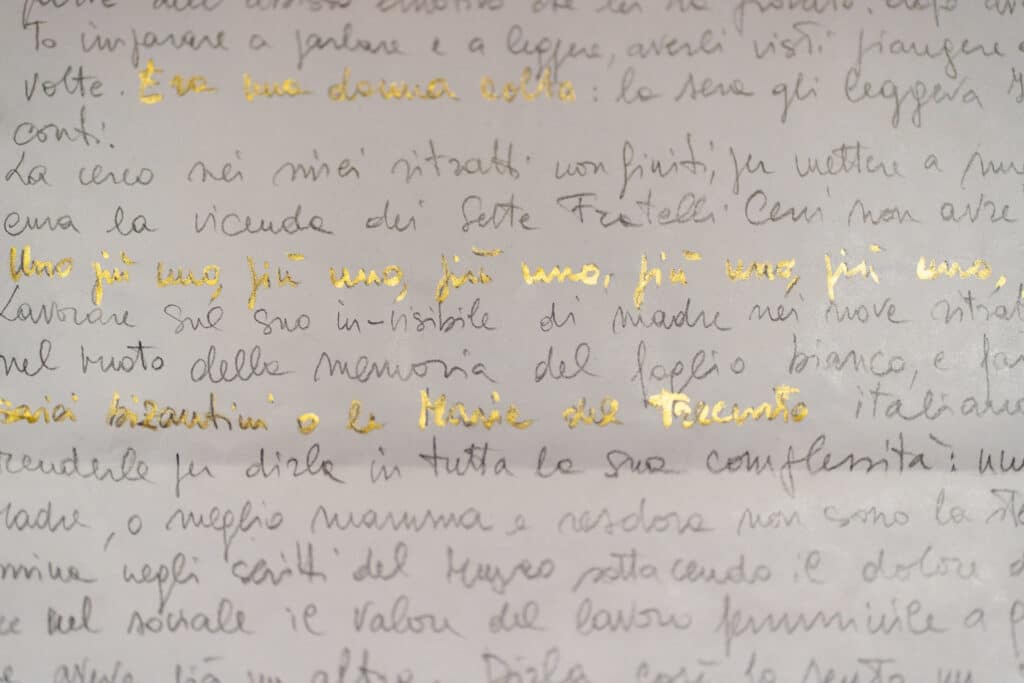 To imparare a parlare e a leggere, averli visti piangere
volte. Era una donna colta: la sera gli leggeva
conti.
La cerco nei miei ritratti non finiti, per mettere a
la vicenda dei Sette Fratelli Cervi non avre
Uno più uno, più uno, più uno, più uno, più uno,
Lavorare sul suo in-visibile di madre nei nove ritrat
nel vuoto della memoria del foglio bianco, e far
saici bizantini o le Marie del Trecento italiano
renderle per dirla in tutta la sua complessità: un
adre, o meglio mamma e resdora non sono la ste
mina negli scritti del Museo sottacendo il dolore
nel sociale il valore del lavoro femminile a
e aveva già un altro. Dirla così la sento un